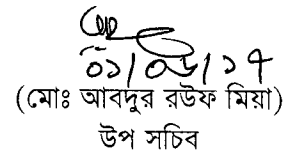 ০১/০৬/১৭
(মোঃ আবদুর রউফ মিয়া)
উপ সচিব